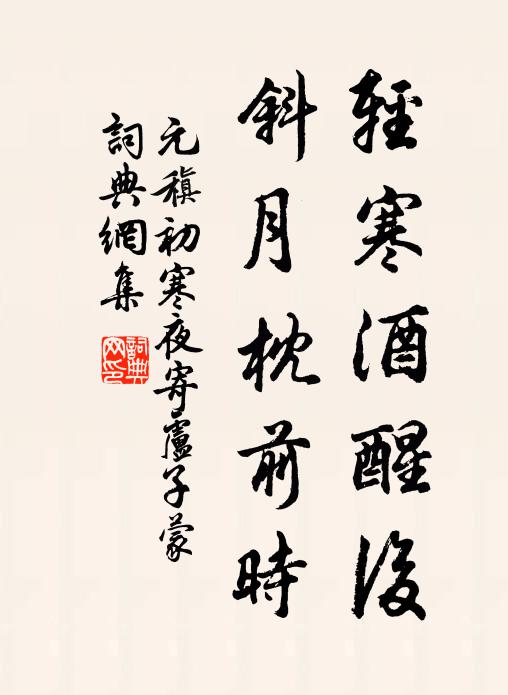 輕寒酒醒後
斜月枕前時
元稹初寒夜寄盧子蒙
詞典網集
詞典
网印